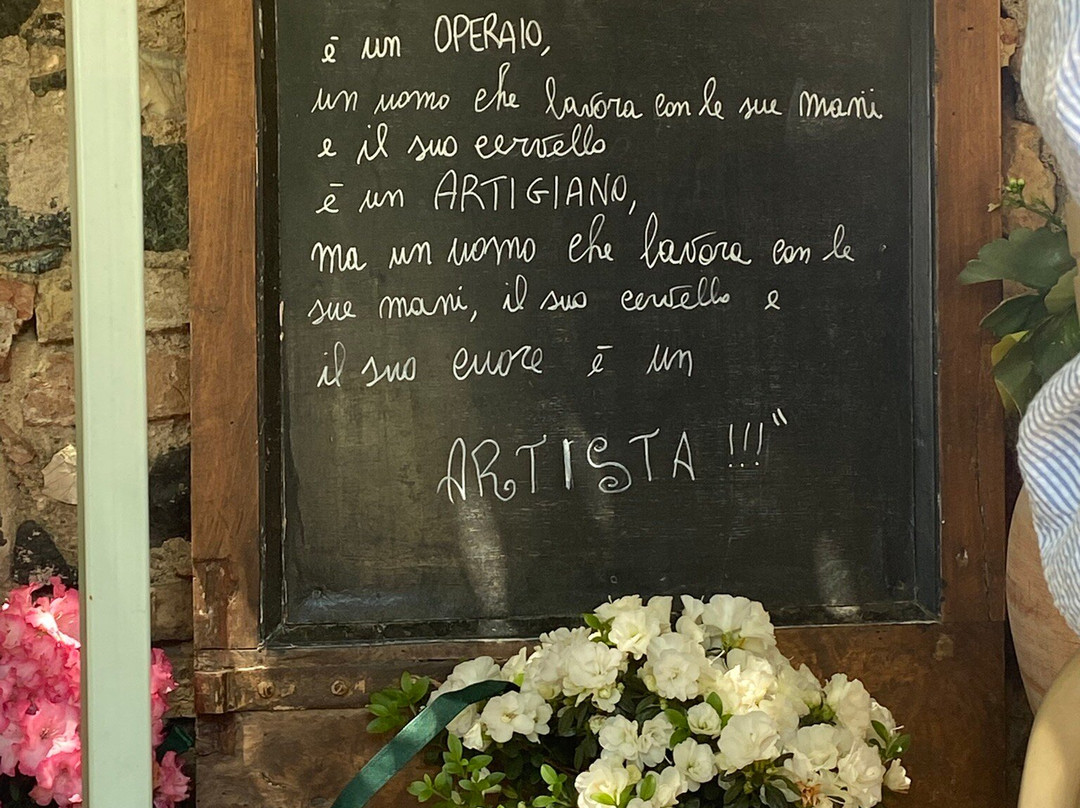 è un OPERAIO,
un uomo che lavora con le sue mani
e il suo cervello
è un ARTIGIANO,
ma un uomo che lavora con le
sue mani, il suo cervello e
il suo cuore è un
ARTISTA !!!"